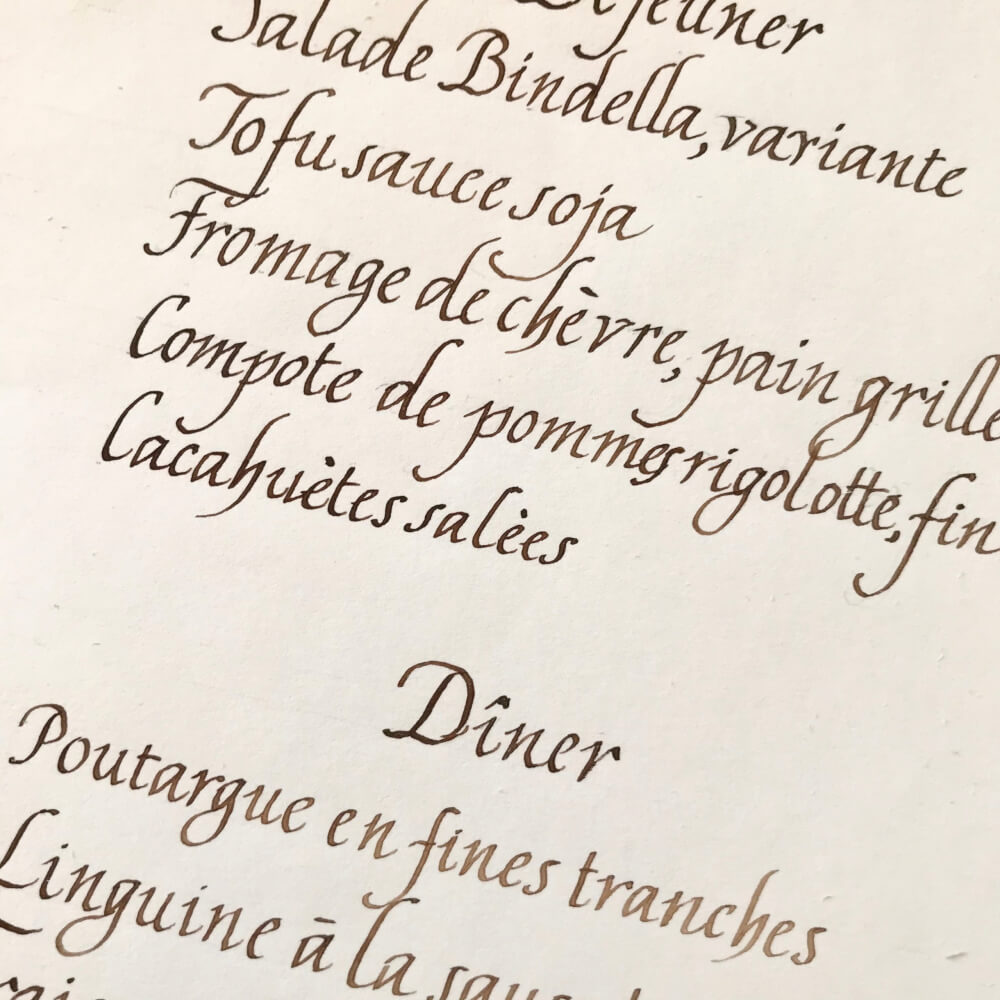 Déjeuner
Salade Bindella, variante
Tofu sauce soja
Fromage de chèvre, pain grillé
Compote de pommes rigolotte, fin
Cacahuètes salées
Dîner
Poutargue en fines tranches
Linguine à la